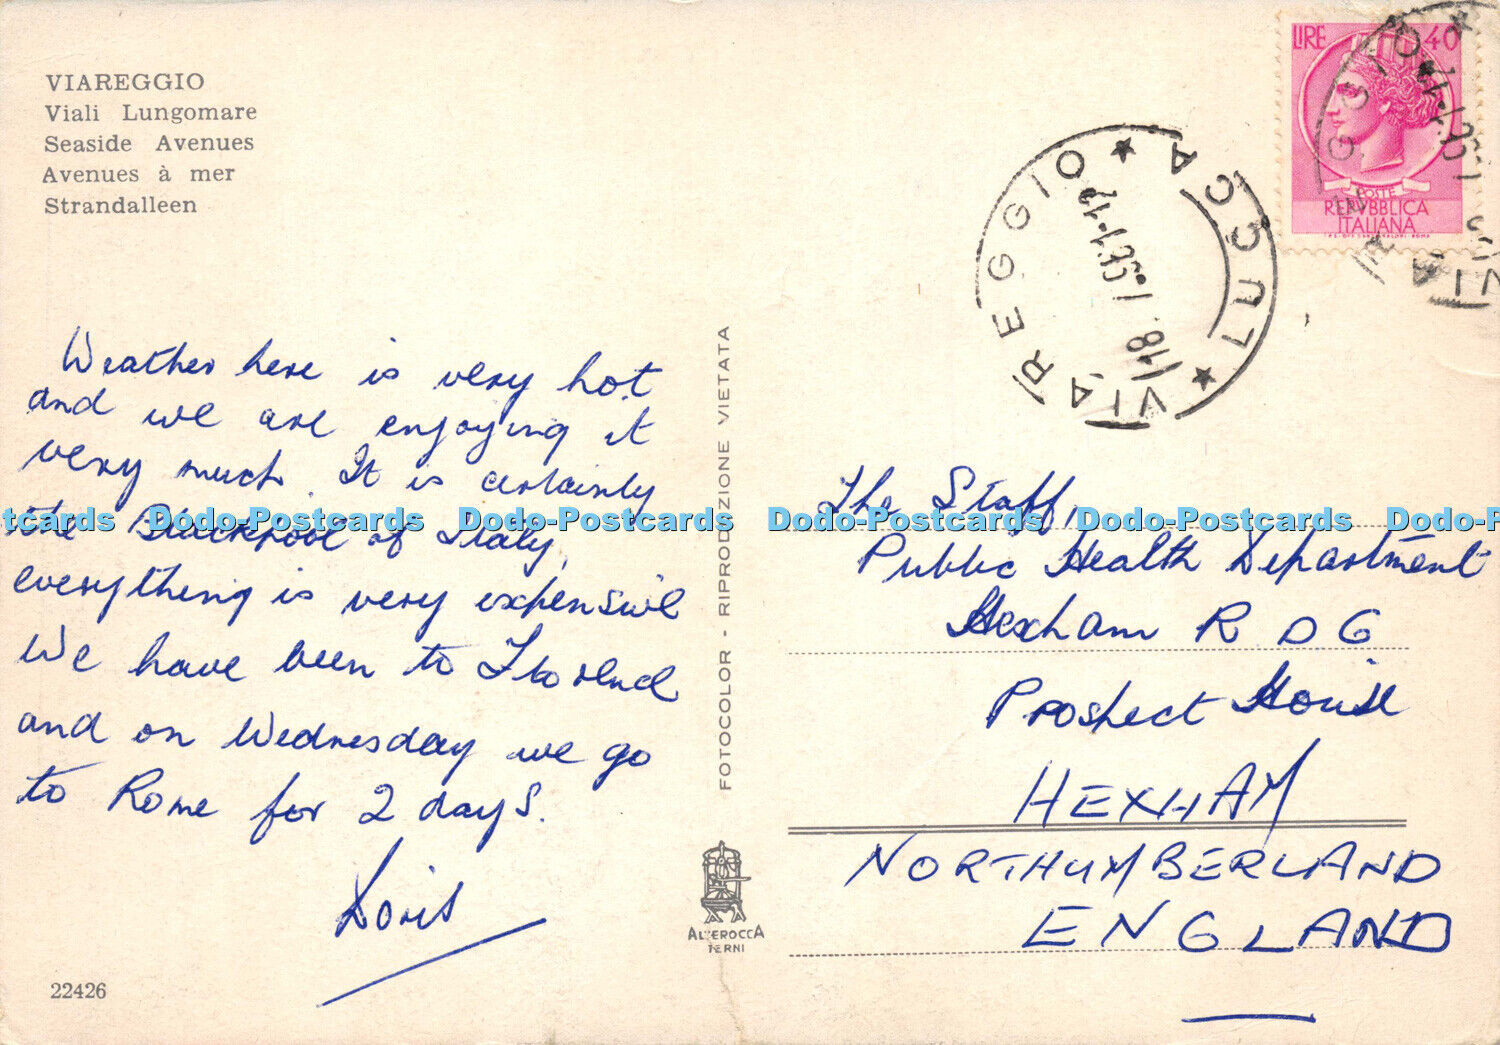 VIAREGGIO
Viali Lungomare
Seaside Avenues
Avenues à mer
Strandalleen
Weather here is very hot
and we are enjoying it
very much. It is certainly
the Blackpool of Italy,
everything is very expensive
We have been to
and on Wednesday we go
to Rome for 2 days.
Doris
22426
FOTOCOLOR - RIPRODUZIONE VIETATA
ALTEROCCA
TERNI
LIRE 40
POSTE
REPVBBLICA
ITALIANA
VIAREGGIO
LUCCA
The Staff,
Public Health Department
Hexham R D C
Prospect House
HEXHAM
NORTHUMBERLAND
ENGLAND
Dodo-Postcards Dodo-Postcards Dodo-Postcards Dodo-Postcards